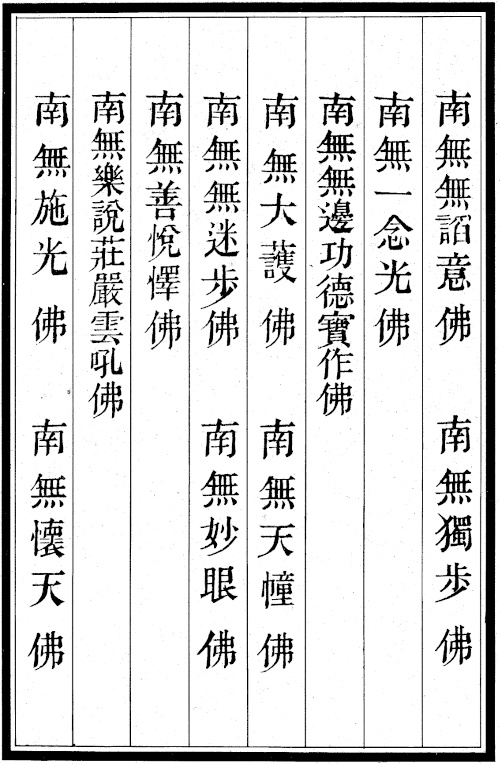 南無無諂意佛　南無獨步佛
南無一念光佛
南無無邊功德寶作佛
南無大護佛　南無天幢佛
南無無迷步佛　南無妙眼佛
南無善悅懌佛
南無樂說莊嚴雲吼佛
南無施光佛　南無懷天佛